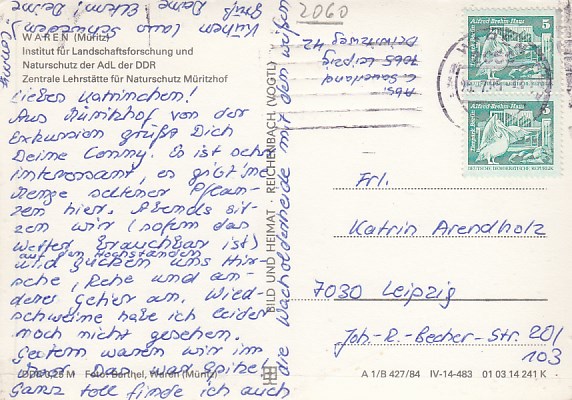 WAREN (Müritz)
Institut für Landschaftsforschung und
Naturschutz der AdL der DDR
Zentrale Lehrstätte für Naturschutz Müritzhof
Liebes Katrinchen!
Aus Müritzhof von der
Exkursion grüßt Dich
Deine Conny. Es ist sehr
interessant, es gibt ne
Menge seltener Pflan-
zen hier. Abends sit-
zen wir (sofern das
Wetter brauchbar ist)
auf den Hochständen
und gucken uns Hir-
sche, Rehe und an-
deres Getier an. Wild-
schweine habe ich leider
noch nicht gesehen.
Gestern waren wir im
Moor. Das war Spitze!
Ganz toll finde ich auch
die Wacholderheide mit dem weißen
Gruß Deine Eltern! Deine
Conny
DDR 0,25 M Foto: Barthel, Waren (Müritz)
BILD UND HEIMAT · REICHENBACH (VOGTL)
2060
Abs.:
C. Sauerland
7065 Leipzig
42
Alfred-Brehm-Haus
Tierpark Berlin
5
DEUTSCHE DEMOKRATISCHE REPUBLIK
Alfred-Brehm-Haus
Tierpark Berlin
5
DEUTSCHE DEMOKRATISCHE REPUBLIK
Frl.
Katrin Arendholz
7030 Leipzig
Joh.-R.-Becher-Str. 20/
103
A 1/B 427/84 IV-14-483 01 03 14 241 K